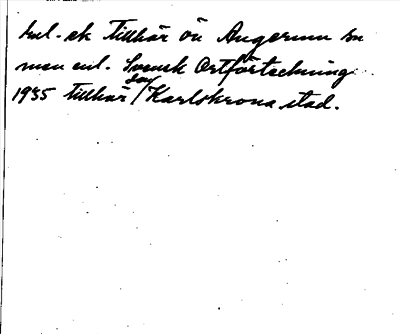 enl. ek tillhör ön Angerum sn
men enl. Svensk Ortförteckning
1935 tillhör /den/ Karlskrona stad.